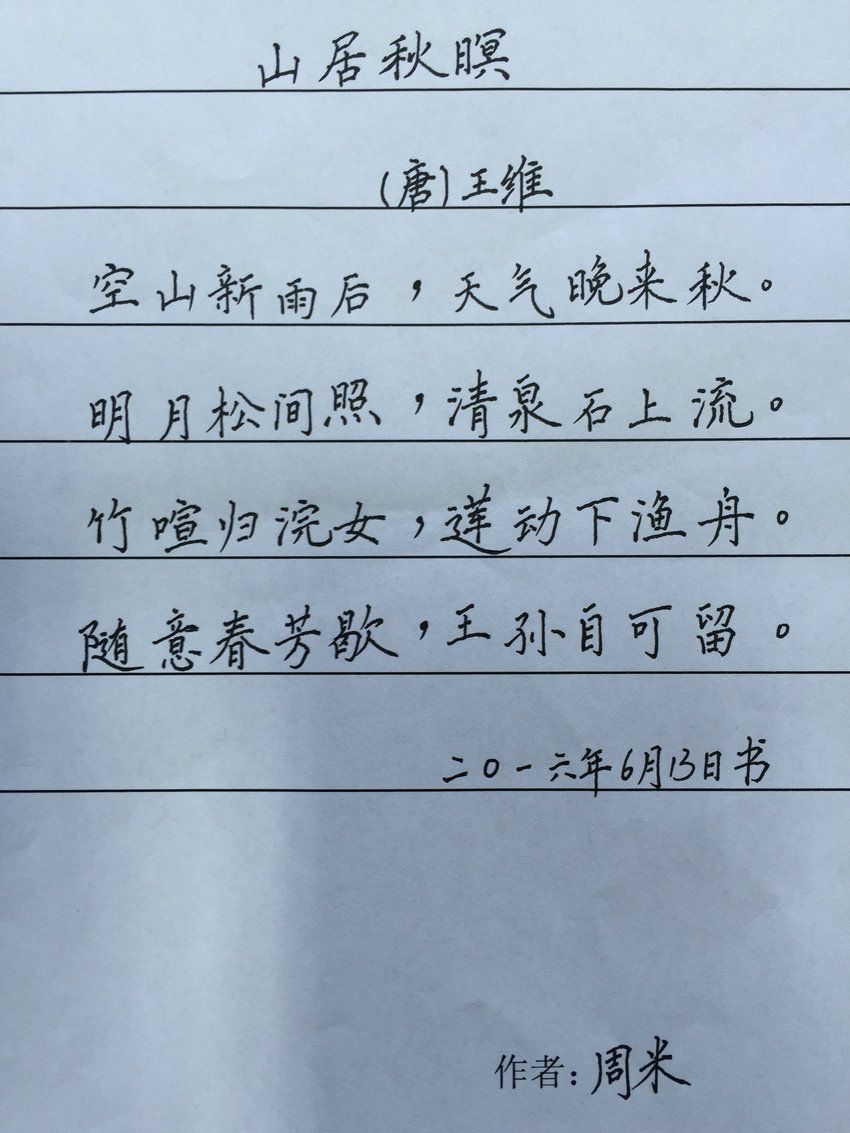 山居秋暝
(唐)王维
空山新雨后，天气晚来秋。
明月松间照，清泉石上流。
竹喧归浣女，莲动下渔舟。
随意春芳歇，王孙自可留。
二〇一六年6月13日书
作者：周米